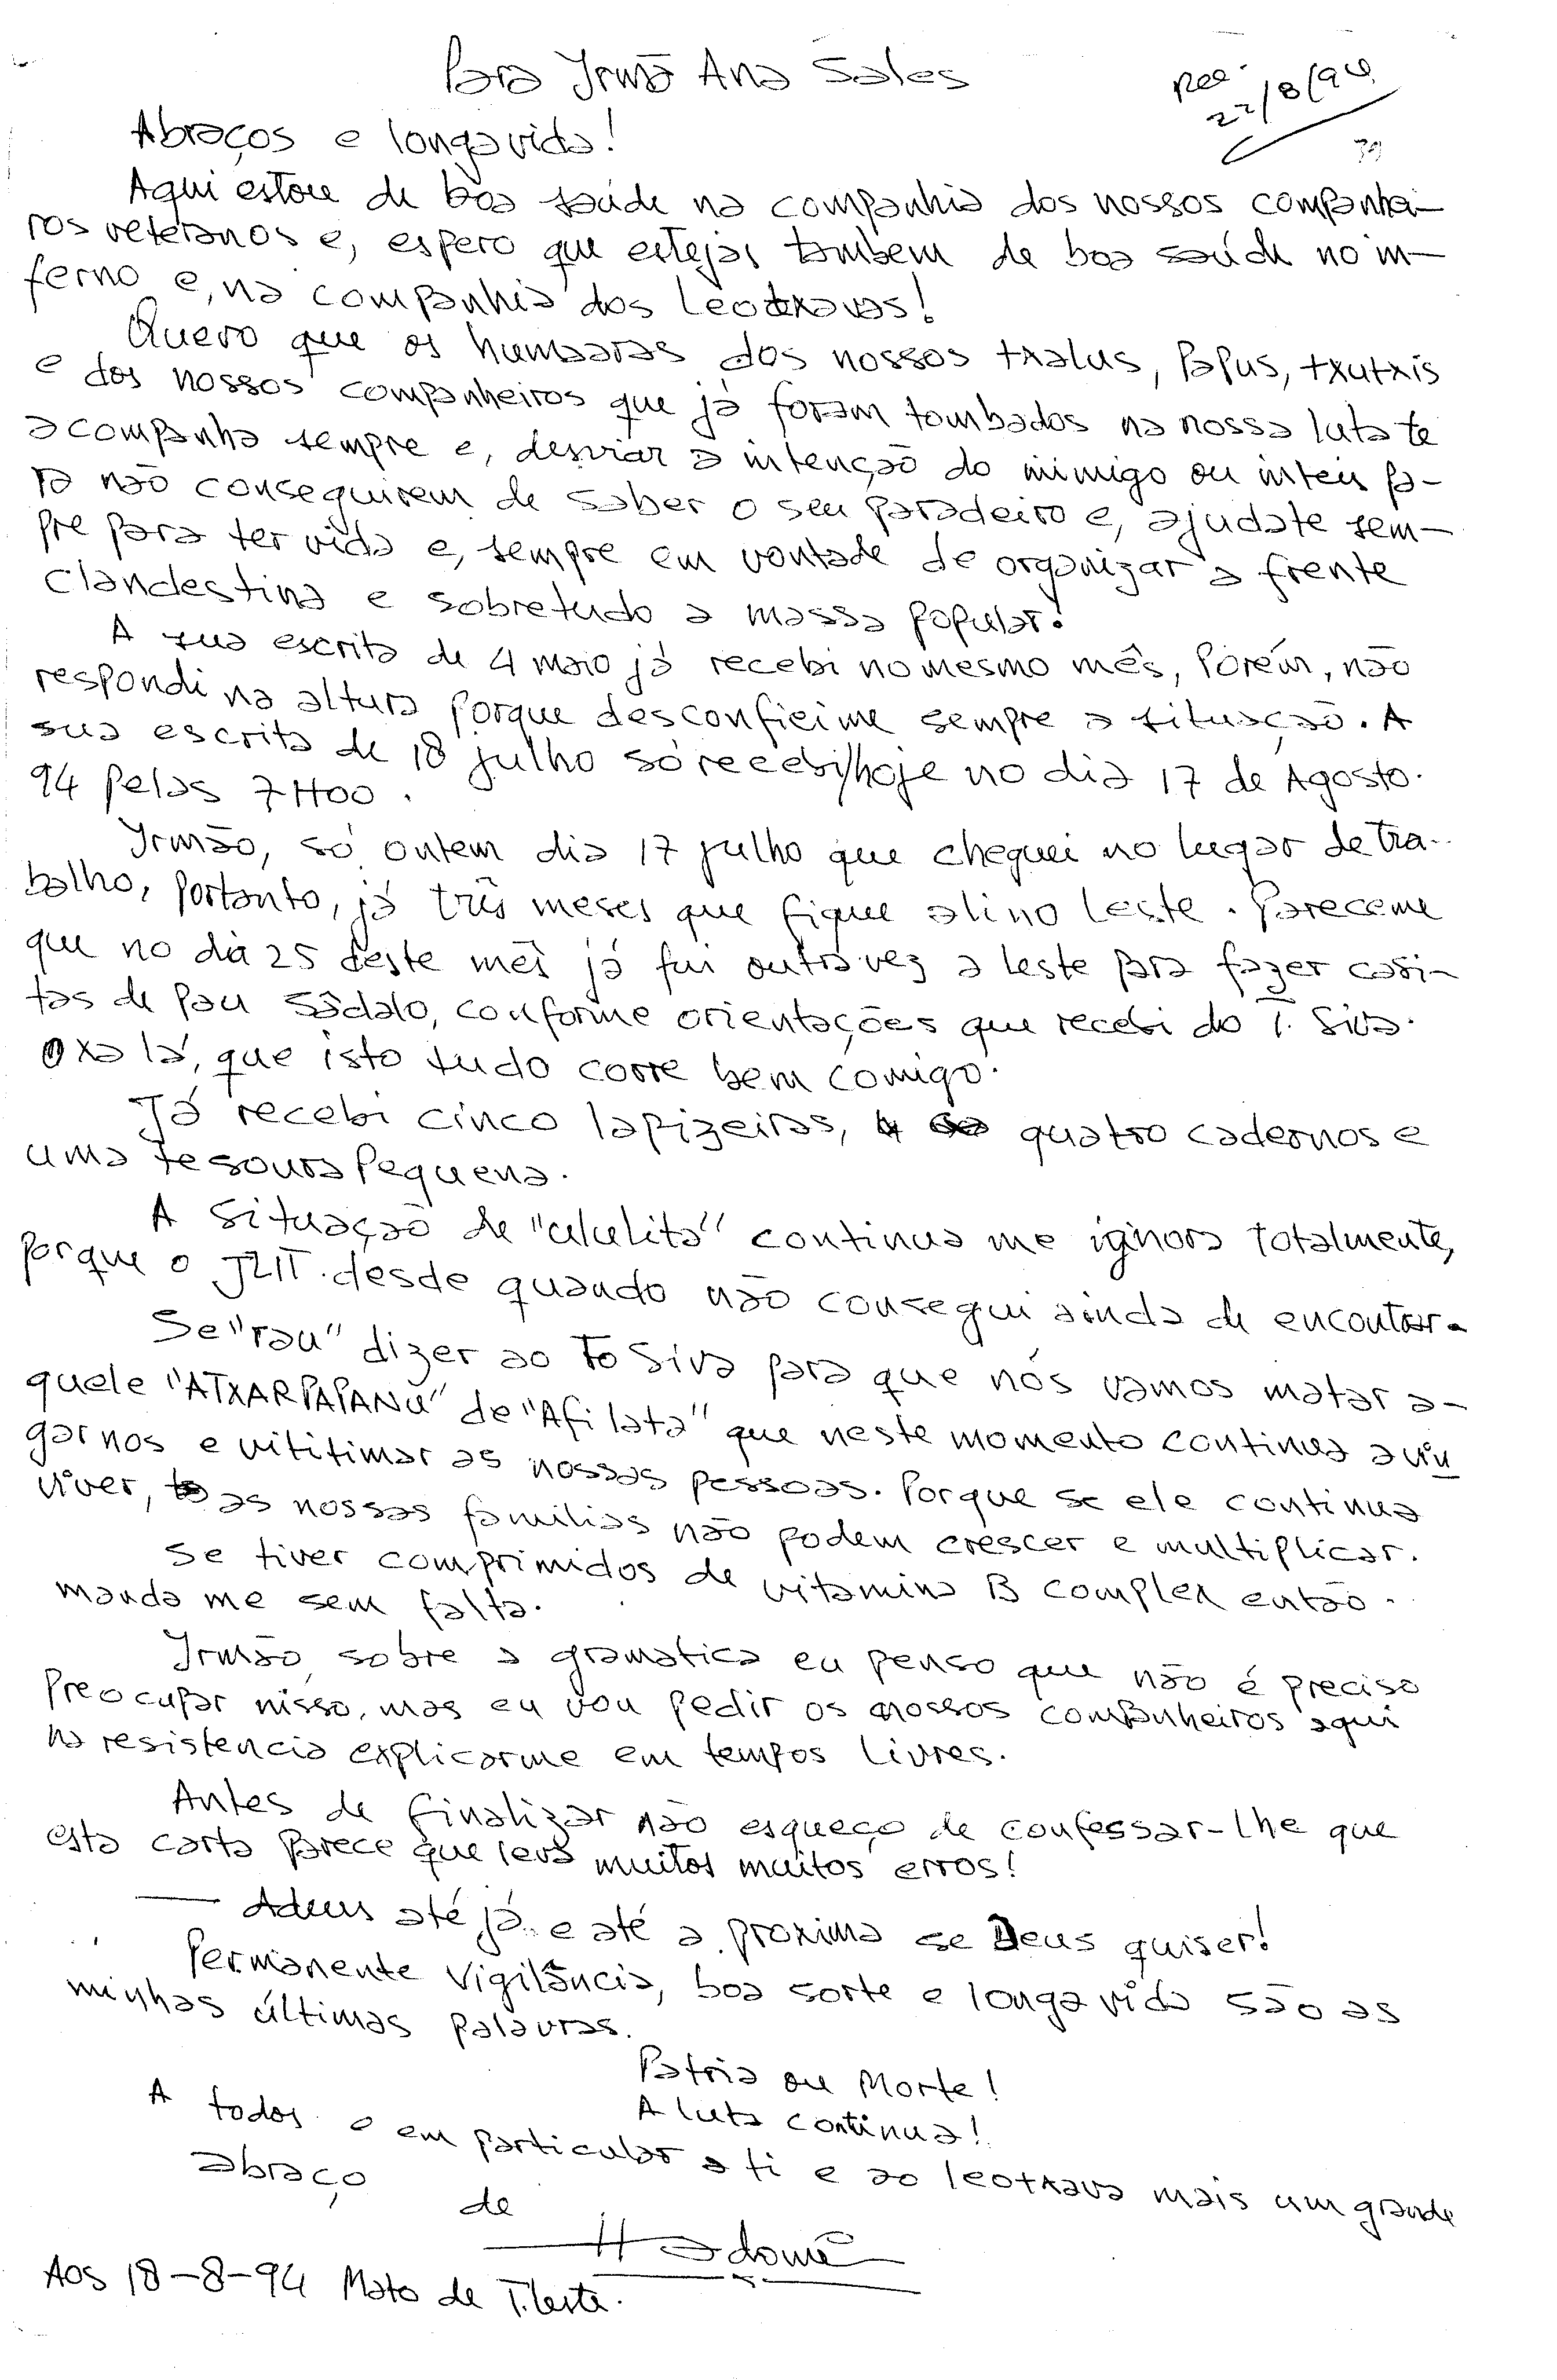 Para Irmã Ana Sales
Rec. 22/8/94
39
Abraços e longa vida!
Aqui estou de boa saúde na companhia dos nossos companhei-
ros veteranos e, espero que estejas tambem de boa saúde no in-
ferno e, na companhia dos Leotxavas!
Quero que os humaaras dos nossos txalus, papus, txutxis
e dos nossos companheiros que já foram tombados na nossa luta te
acompanha sempre e, desviar a intenção do inimigo ou inteis pa-
ra não conseguirem de saber o seu paradeiro e, ajudate sem-
pre para ter vida e, sempre em vontade de organizar a frente
clandestina e sobretudo a massa popular!
A sua escrita de 4 maio já recebi no mesmo mês, Porém, não
respondi na altura porque desconfieime sempre a situação. A
sua escrita de 18 julho só recebi hoje no dia 17 de Agosto.
94 pelas 7H00.
Irmão, só ontem dia 17 julho que cheguei no lugar de tra-
balho, portanto, já três meses que fiquei ali no Leste. Pareceme
que no dia 25 deste mês já fui outra vez a leste para fazer casi-
tas de pau sãdalo, conforme orientações que recebi do T. Siva.
Oxalá, que isto tudo corre bem comigo.
Já recebi cinco lapizeiras, quatro cadernos e
uma tesoura pequena.
A situação de "ululita" continua me ignora totalmente,
porque o JLIT. desde quando não consegui ainda de encontrar.
Se "rau" dizer ao To Siva para que nós vamos matar a-
quele "ATXARPAPANU" de "Afilata" que neste momento continua a vin
gar nos e vititimar as nossas pessoas. Porque se ele continua
viver, as nossas familias não podem crescer e multiplicar.
Se tiver comprimidos de vitamina B complex então.
manda me sem falta.
Irmão, sobre a gramatica eu penso que não é preciso
preocupar nisso, mas eu vou pedir os nossos companheiros aqui
na resistencia explicarme em tempos livres.
Antes de finalizar não esqueço de confessar-lhe que
esta carta parece que leva muitos muitos erros!
— Adeus até já e até a proxima se Deus quiser!
Permanente vigilância, boa sorte e longa vida são as
minhas últimas palavras.
Patria ou Morte!
A luta continua!
A todos e em particular a ti e ao leotxava mais um grande
abraço
de
Hadomi
Aos 18-8-94 Mato de T. Leste.